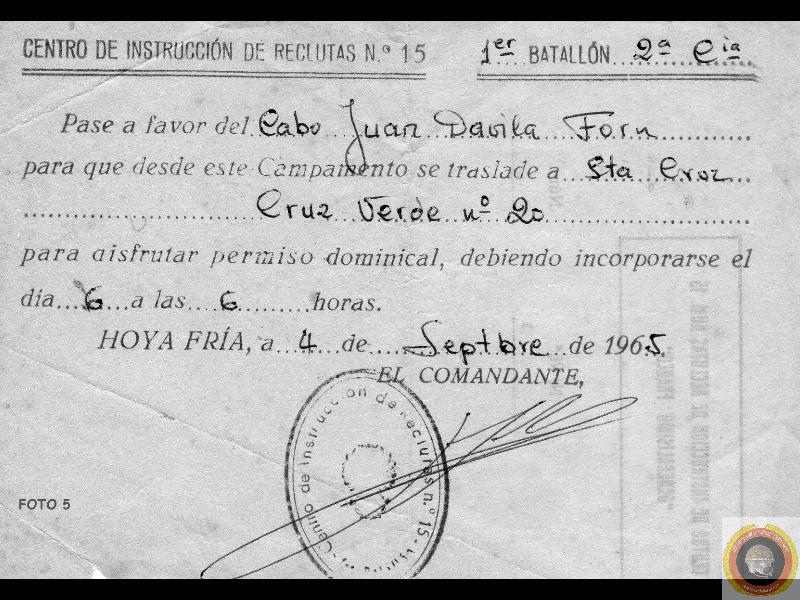 CENTRO DE INSTRUCCIÓN DE RECLUTAS N.º 15 1er BATALLÓN 2ª Cia
Pase a favor del Cabo Juan Davila Forn
para que desde este Campamento se traslade a Sta Cruz
Cruz Verde nº 20
para disfrutar permiso dominical, debiendo incorporarse el
día 6 a las 6 horas.
HOYA FRÍA, a 4 de Septbre de 1965.
EL COMANDANTE,
Centro de Instrucción de Reclutas n.º 15
FOTO 5